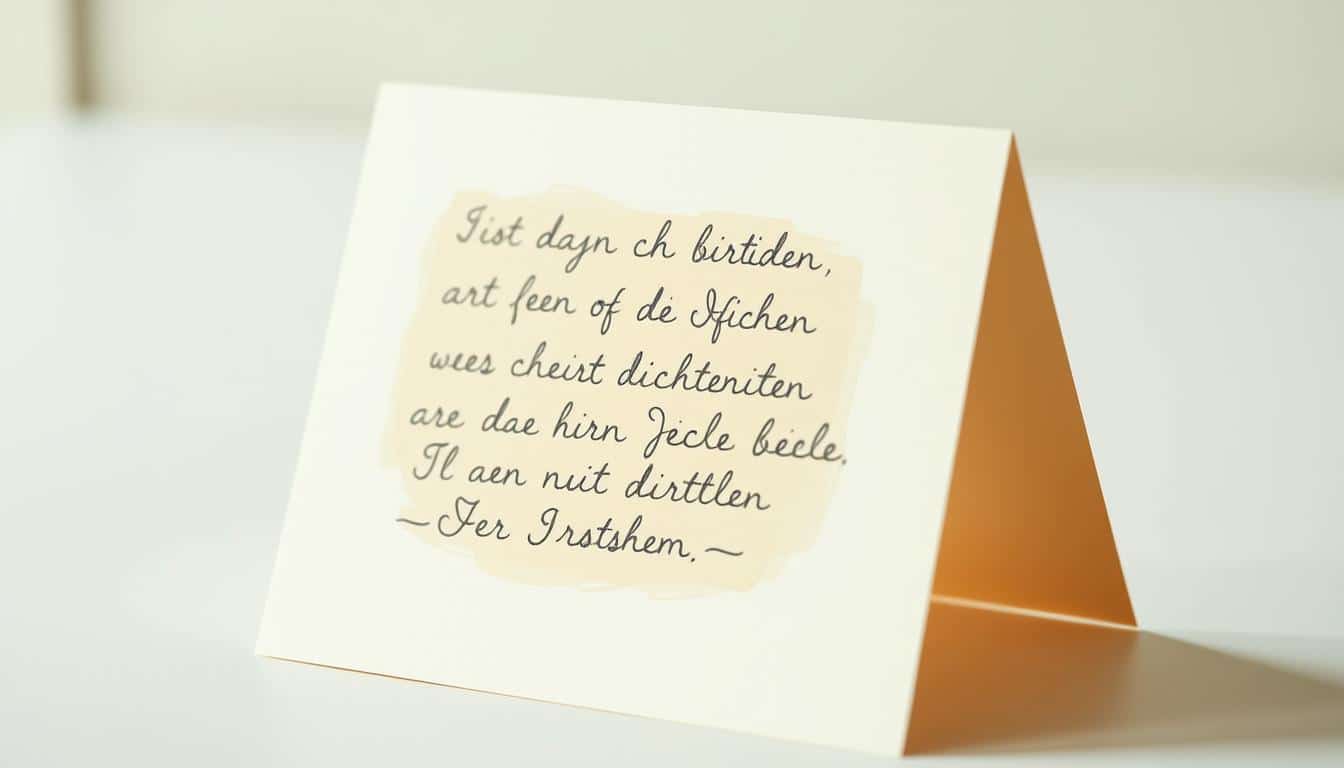 Jist dajn ch birtiden,
art feen of de Ifichen
wees cheirt dichteniten
are dae hirn Jecle becle.
Il aen nuit dirttlen
—Fer Irstshem.—